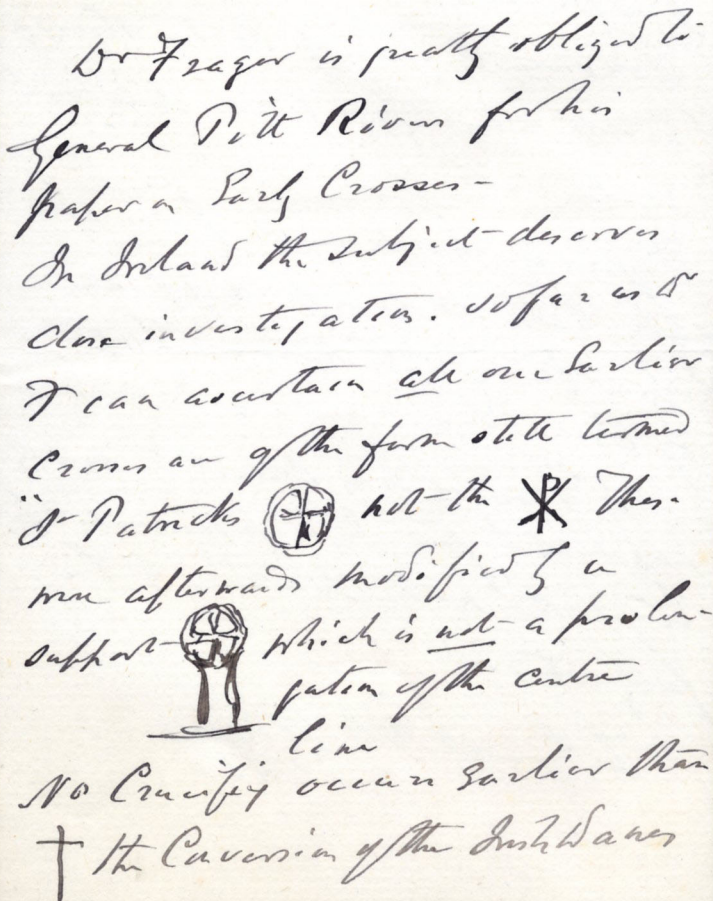 Dr Frazer is greatly obliged to
General Pitt Rivers for his
paper on Early Crosses -
In Ireland the subject deserves
close investigation. So far as
I can ascertain all our Earlier
Crosses are of the form still termed
"St Patricks not the ☧ These
were afterwards modified by a
support which is not a prolon-
gation of the centre
line
No Crucifix occurs Earlier than
the Conversion of the Irish Danes